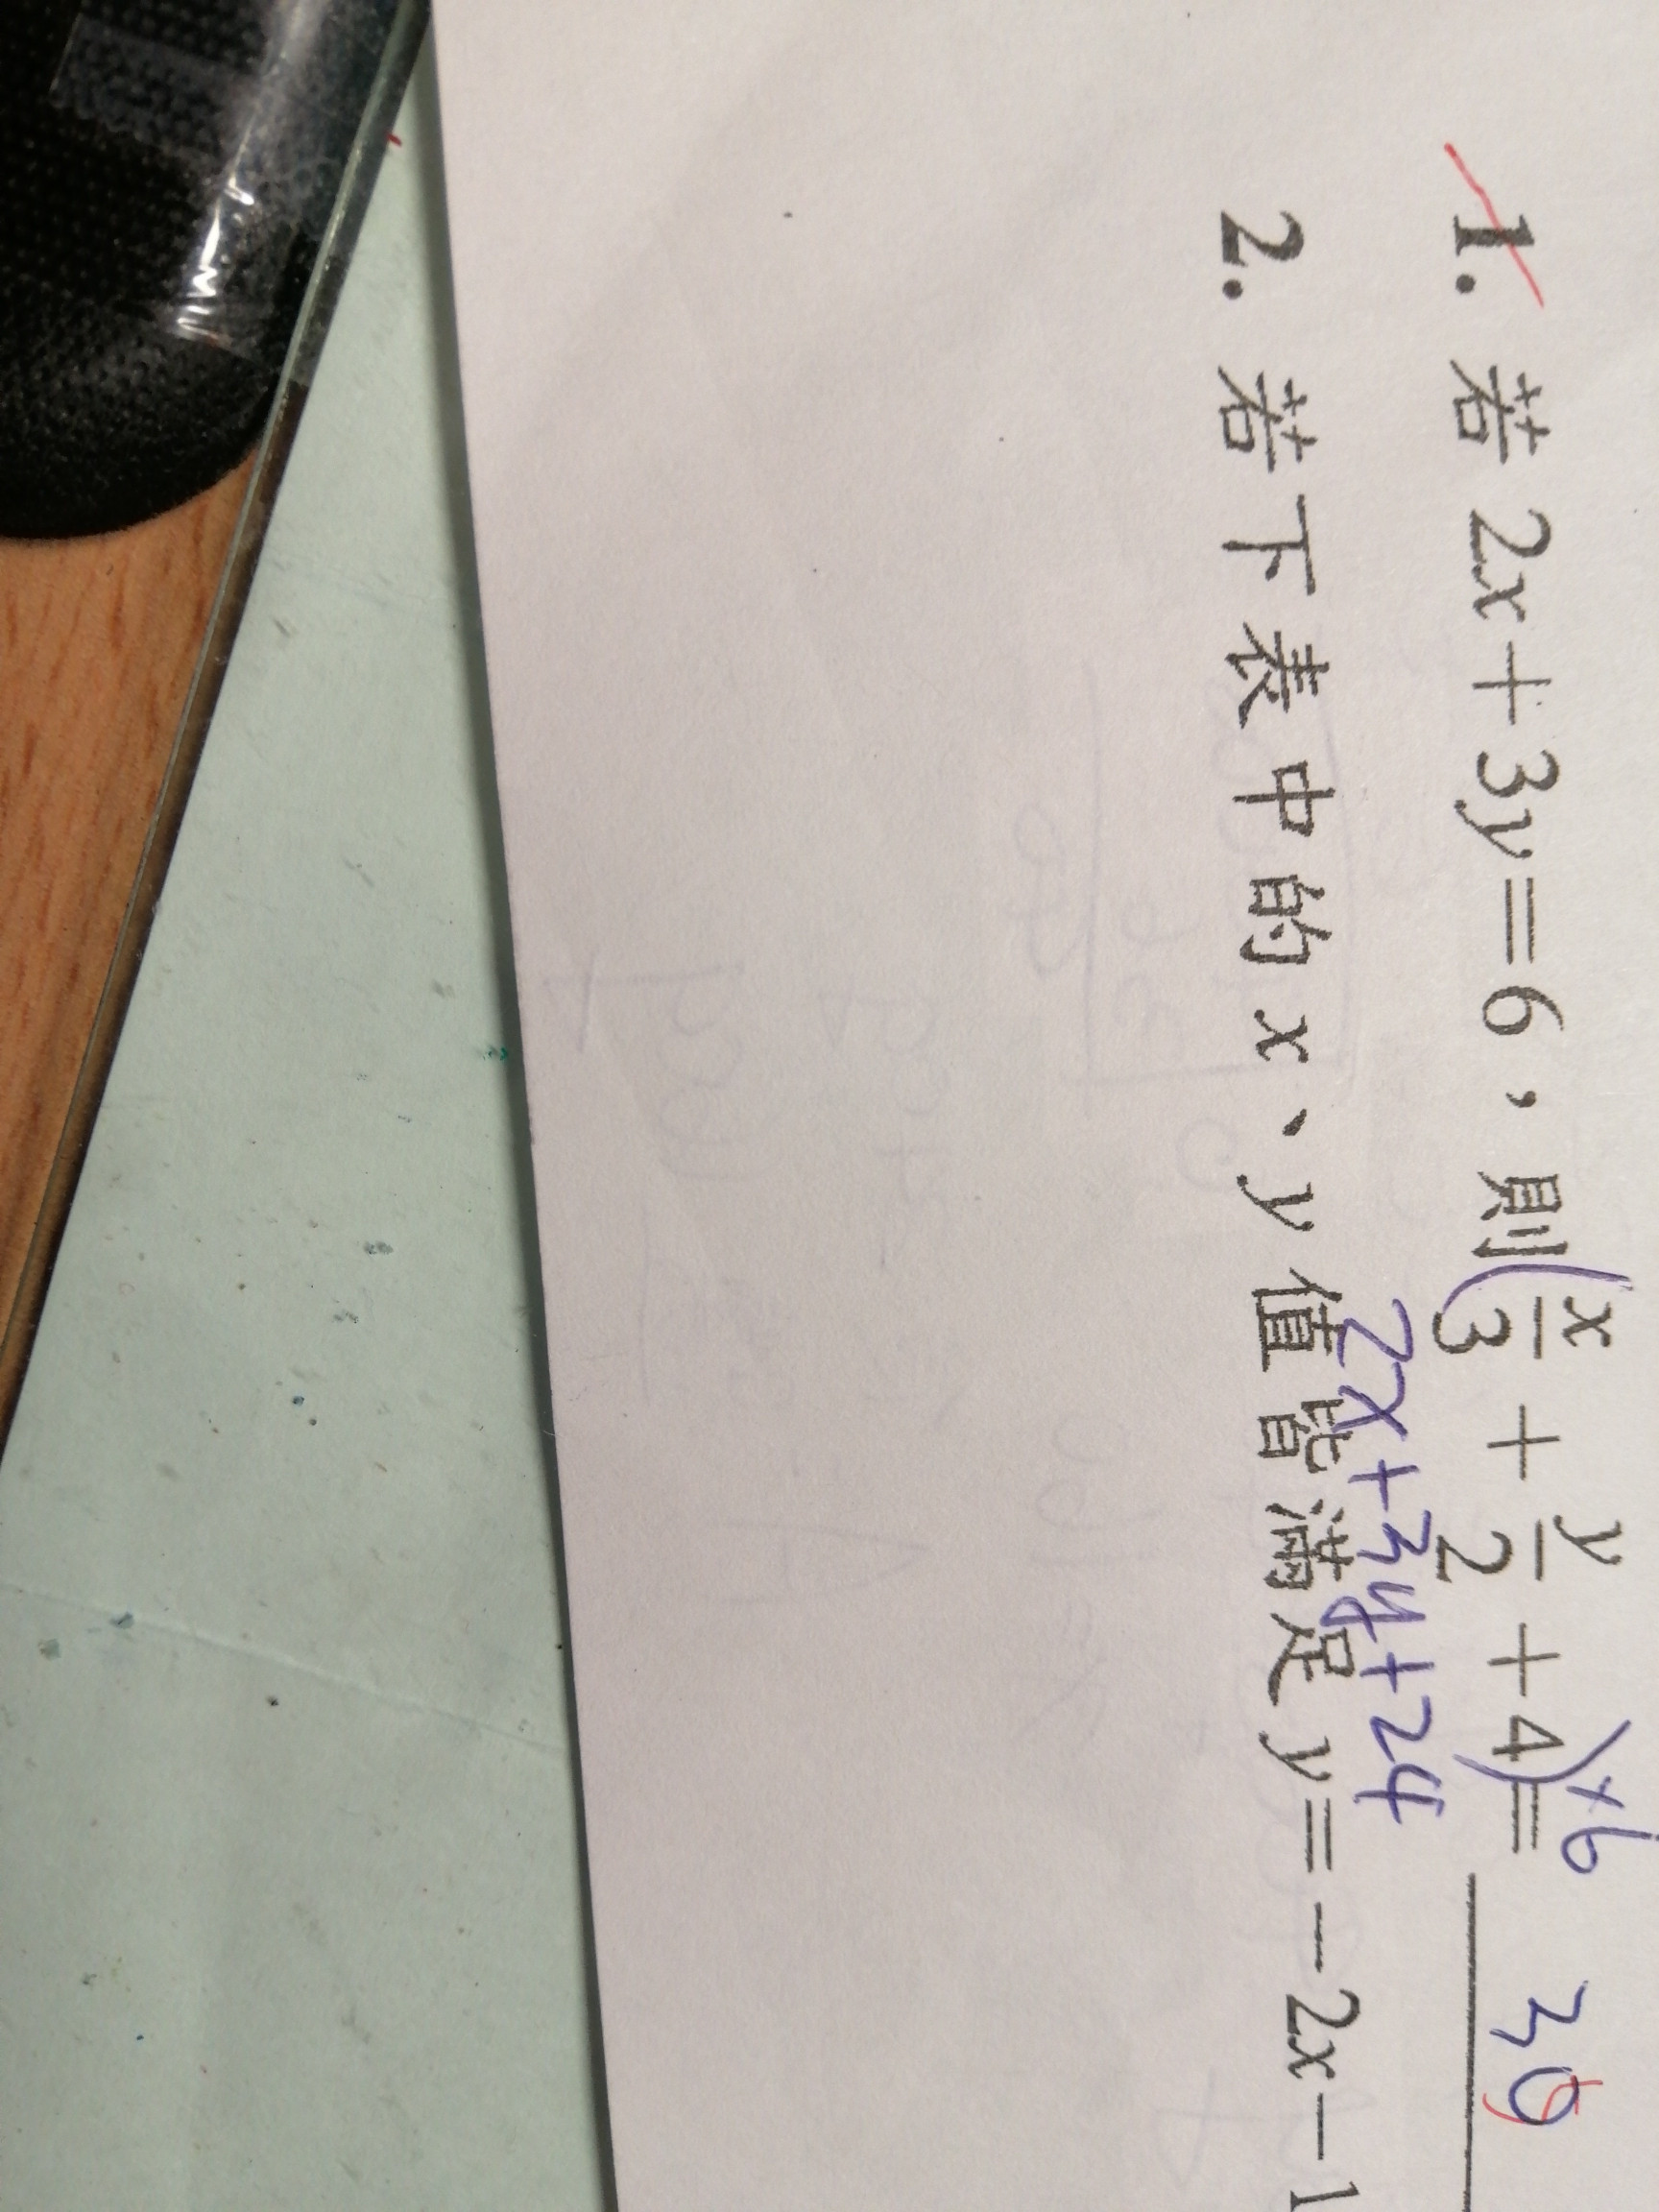 1. 若 2x+3y=6，則(x/3 + y/2 + 4)×6= 30
2x+3y+24
2. 若下表中的 x、y 值皆滿足 y=-2x-1